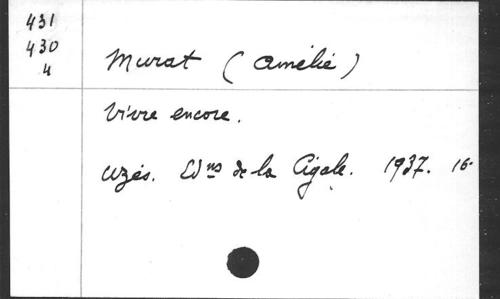 431
430
4
Murat (Amélie)
Vivre encore.
Uzès. Edns de la Cigale. 1937. 16-